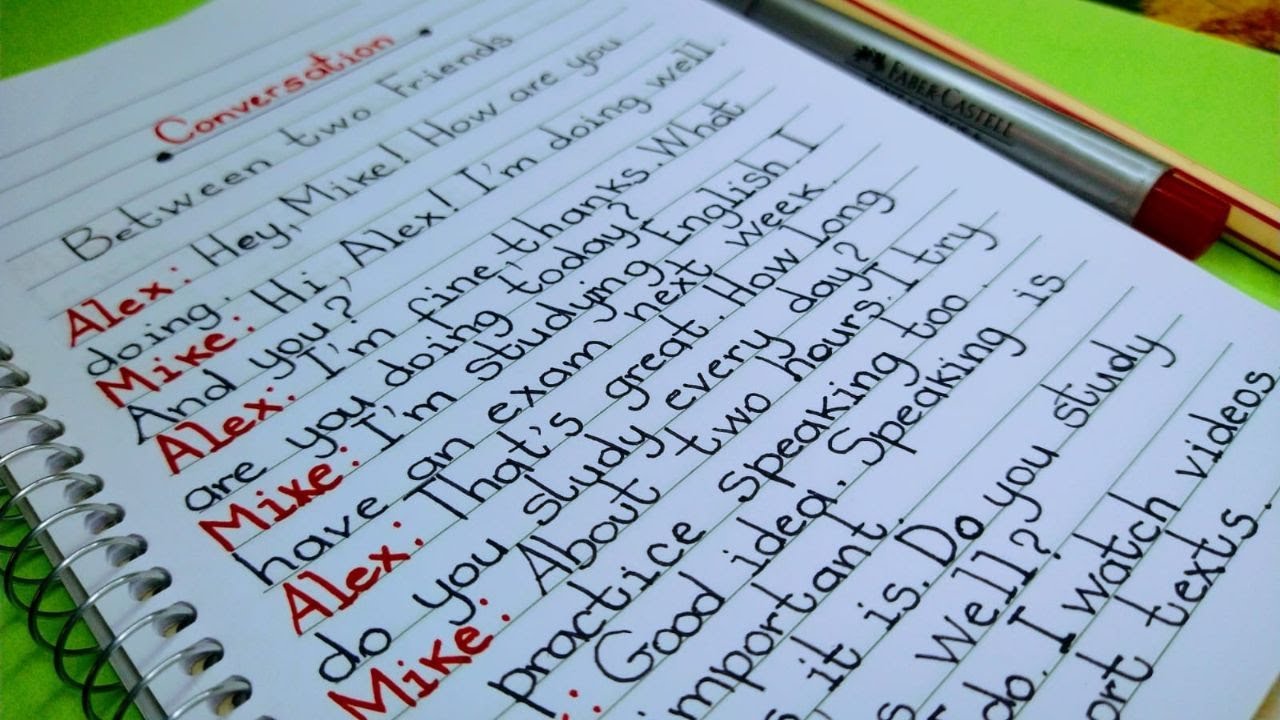 Conversation
Between two Friends
Alex: Hey, Mike! How are you
doing.
Mike: Hi, Alex! I'm doing well.
And you?
Alex: I'm fine, thanks. What
are you doing today?
Mike: I'm studying English I
have an exam next week.
Alex: That's great. How long
do you study every day?
Mike: About two hours. I try
practice speaking too.
: Good idea. Speaking is
important.
it is. Do you study
well?
do. I watch videos
texts.
FABER CASTELL